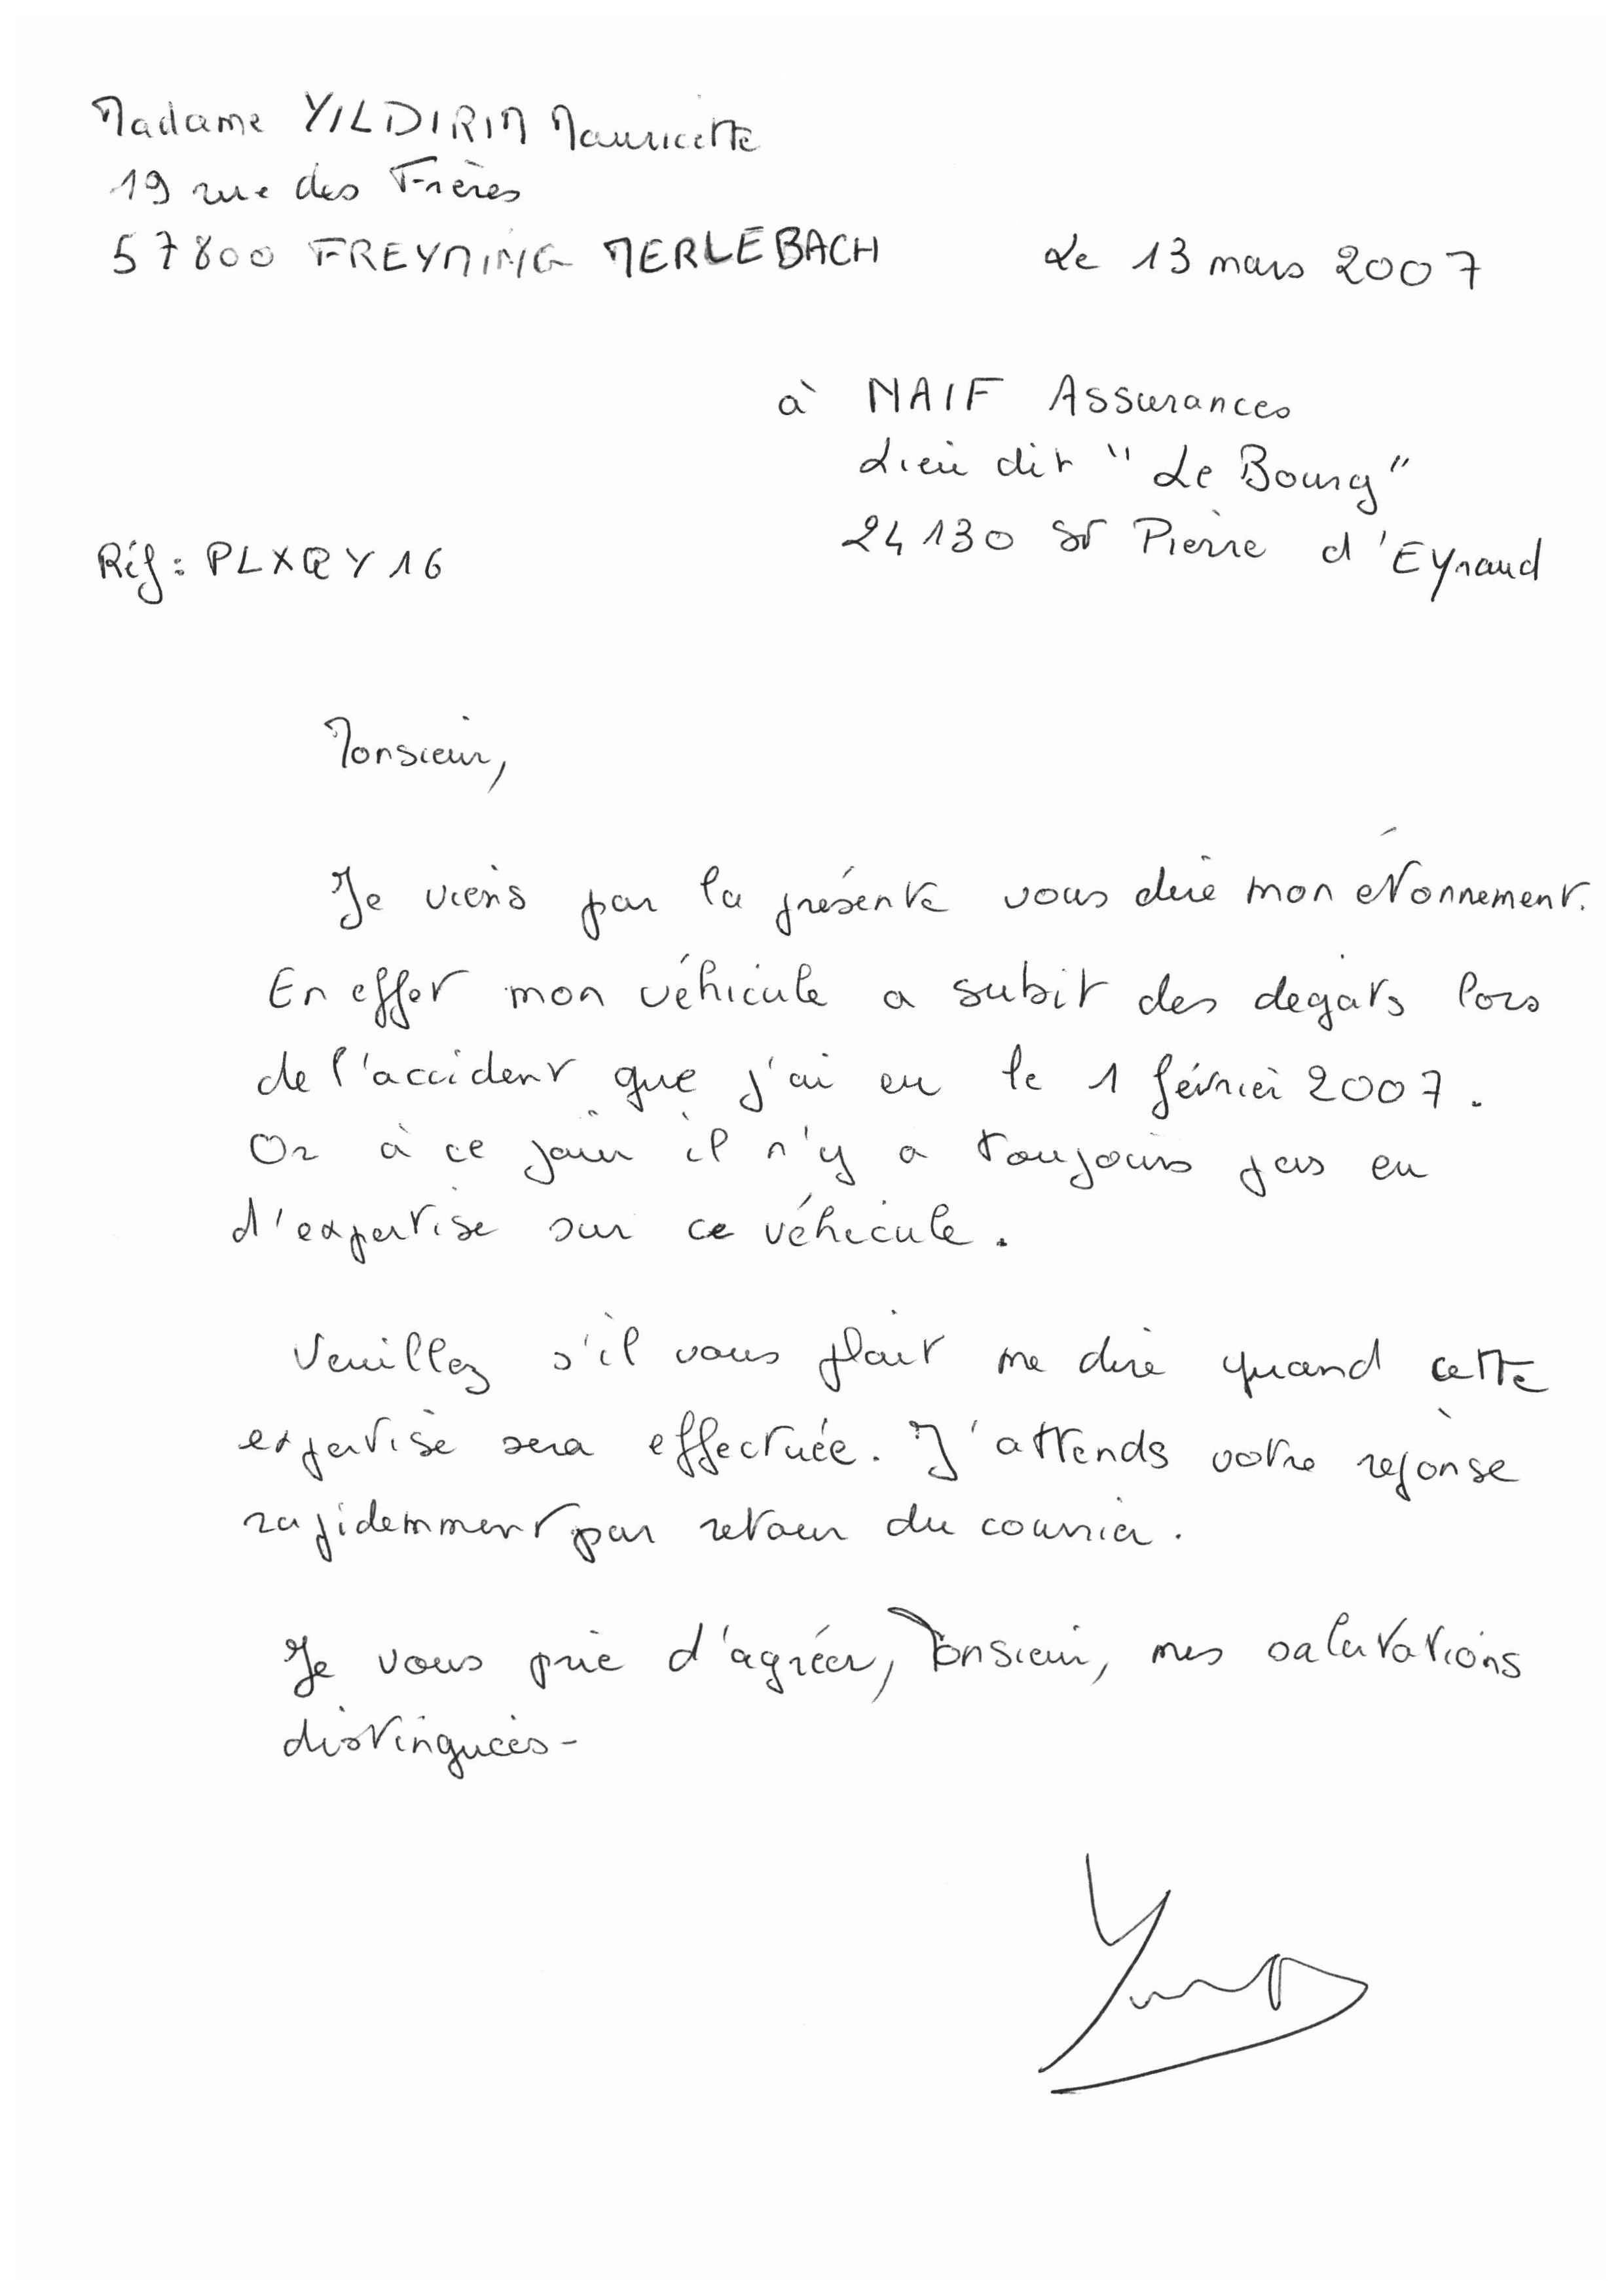 Madame YILDIRIM Mauricette
19 rue des Frères
57800 FREYMING MERLEBACH
Le 13 mars 2007
à MAIF Assurances
Lieu dit "Le Bourg"
24130 St Pierre d'Eyraud
Réf : PLXQY16
Monsieur,
Je viens par la présente vous dire mon étonnement.
En effet mon véhicule a subit des degats lors
de l'accident que j'ai eu le 1 février 2007.
Or à ce jour il n'y a toujours pas eu
d'expertise sur ce véhicule.
Veuillez s'il vous plait me dire quand cette
expertise sera effectuée. J'attends votre reponse
rapidemment par retour du courrier.
Je vous prie d'agréer, Monsieur, mes salutations
distinguées-